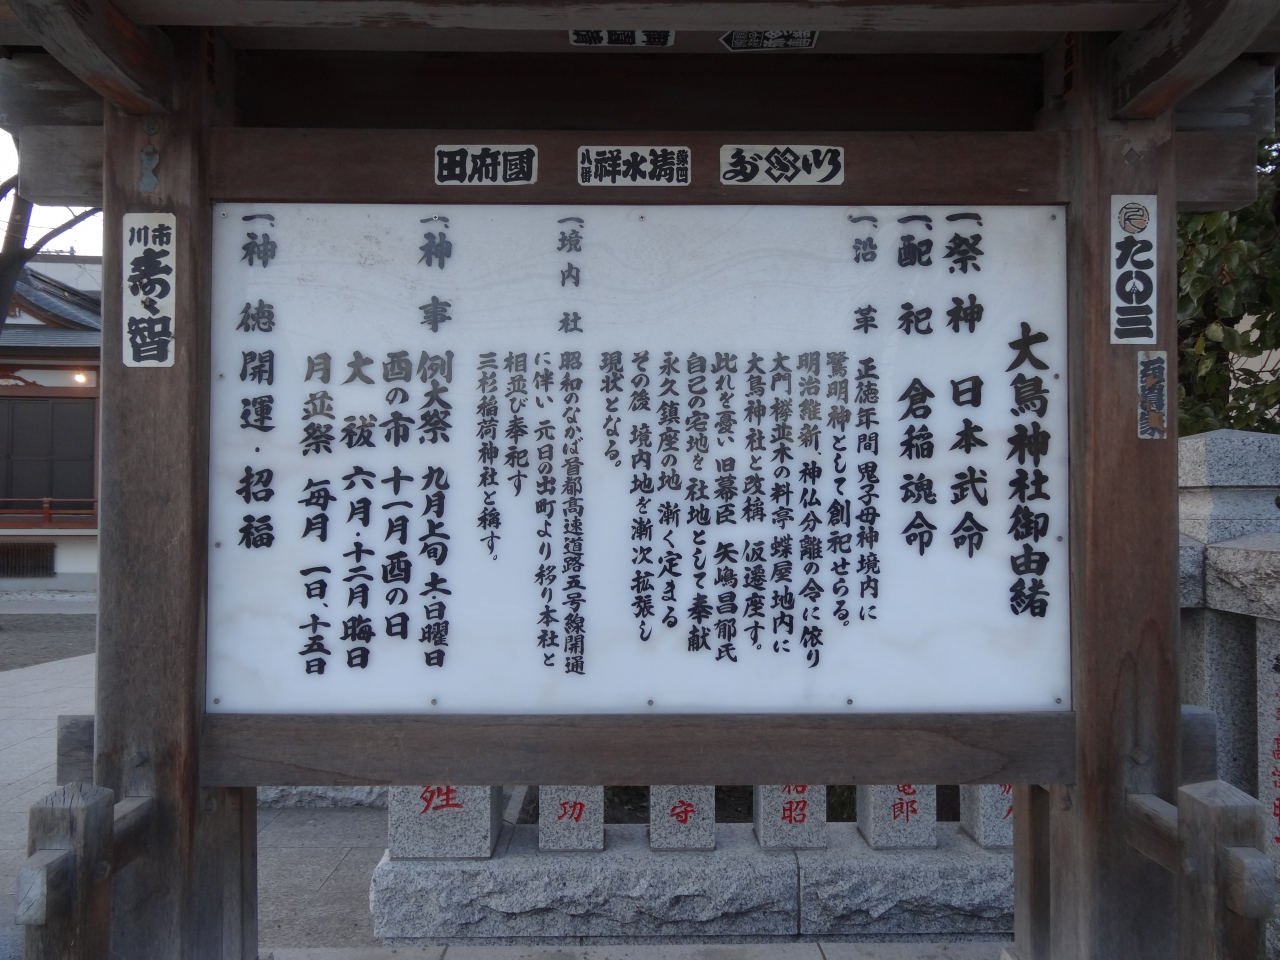 大鳥神社御由緒
一、祭神 日本武命
一、配祀 倉稲魂命
一、沿革 正徳年間 鬼子母神境内に
鷺明神として創祀せらる。
明治維新、神仏分離の令に依り
大門欅並木の料亭 蝶屋地内に
大鳥神社と改稱 仮遷座す。
此れを憂い 旧幕臣 矢嶋昌郁氏
自己の宅地を社地として奉献
永久鎮座の地 漸く定まる
その後 境内地を漸次拡張し
現状となる。
一、境内社 昭和のなかば首都高速道路五号線開通
に伴い 元日の出町より移り本社と
相並び奉祀す
三杉稲荷神社と稱す。
一、神事 例大祭 九月上旬 土・日曜日
酉の市 十一月 酉の日
大祓 六月・十二月 晦日
月並祭 毎月 一日、十五日
一、神徳 開運・招福
國府田
清水祥
八番
市川
寿々智
た〇三
功
守
昭
郎